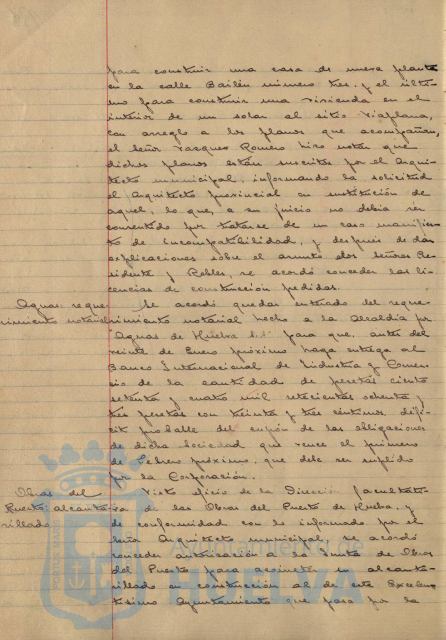 para construir una casa de nueva planta
en la calle Bailén número tres, y el últi-
mo para construir una vivienda en el
interior de un solar al sitio Viaplana,
con arreglo a los planos que acompañan,
el señor Vazquez Romero hizo notar que
dichos planos están suscritos por el Arqui-
tecto municipal, informando la solicitud
el Arquitecto provincial en sustitución de
aquel, lo que, a su juicio no debía ser
consentido por tratarse de un caso manifies-
to de incompatibilidad, y después de dar
explicaciones sobre el asunto los señores Pre-
sidente y Robles, se acordó conceder las li-
cencias de construcción pedidas.
Aguas: reque-
rimiento notarial
Se acordó quedar enterado del reque-
rimiento notarial hecho a la Alcaldía por
"Aguas de Huelva S.A" para que, antes del
veinte de Enero próximo haga entrega al
Banco Internacional de Industria y Comer-
cio de la cantidad de pesetas ciento
setenta y cuatro mil setecientas ochenta y
tres pesetas con treinta y tres céntimos, défi-
cit probable del cupón de las obligaciones
de dicha Sociedad que vence el primero
de Febrero próximo, que debe ser suplido
por la Corporación.
Obras del
Puerto: alcanta-
rillado
Visto oficio de la Dirección facultati-
va de las Obras del Puerto de Huelva, y
de conformidad con lo informado por el
señor Arquitecto municipal, se acordó
conceder autorización a la Junta de Obras
del Puerto para acometer su alcanta-
rillado en construcción al de este Excelen-
tísimo Ayuntamiento que pasa por la
HUELVA